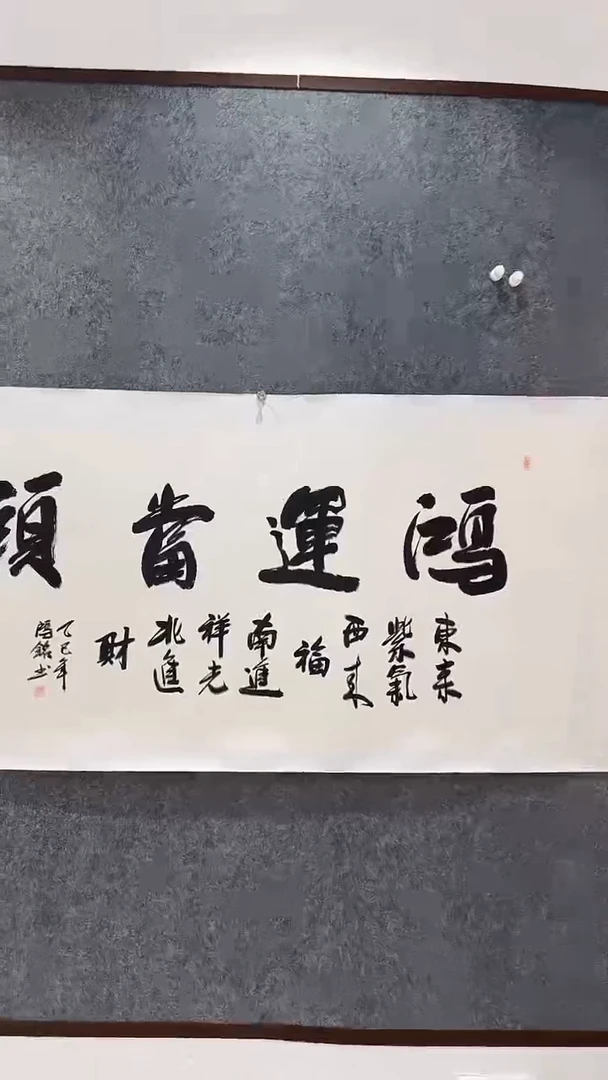 鴻運當頭
東来
紫氣
西来
福
南進
祥光
北進
財
乙巳年
銘书